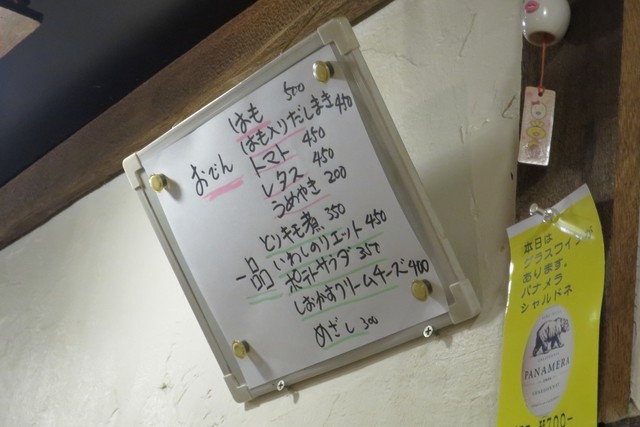 おでん
はも 500
はも入りだしまき 450
トマト 450
レタス 450
うめやき 200
一品
とりキモ煮 350
いわしのリエット 450
ポテトサラダ 350
しおかすクリームチーズ 400
めざし 300
本日は
グラスワイン
あります。
パナメラ
シャルドネ
PANAMERA
¥700-